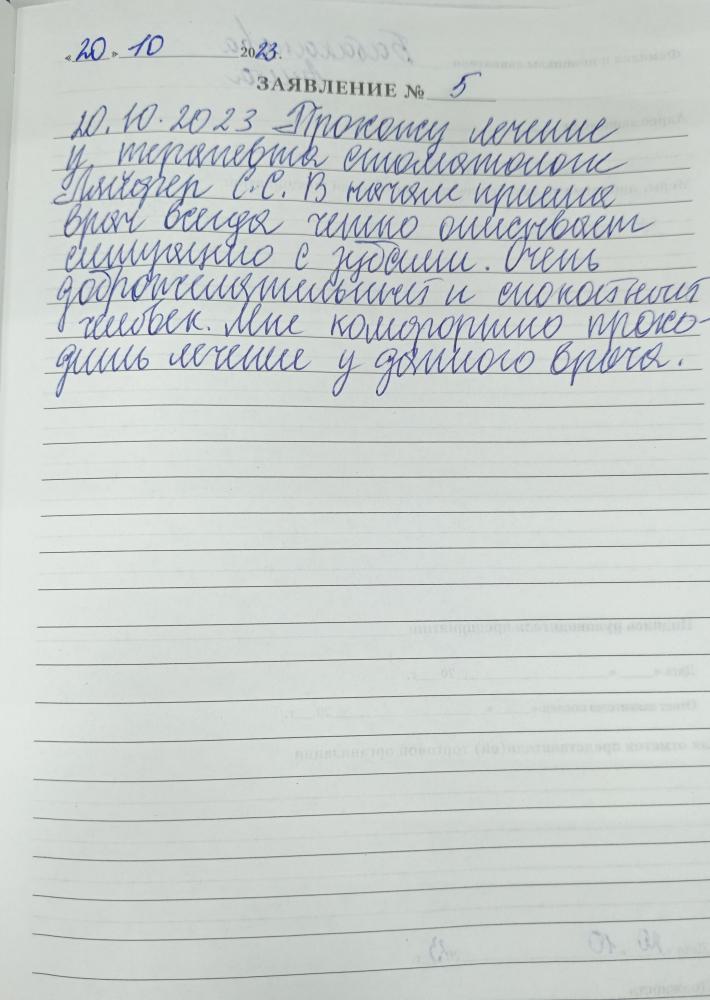 «20» 10 2023.
ЗАЯВЛЕНИЕ № 5
20.10.2023 Прохожу лечение
у терапевта стоматолога
С.С. В начале приема
врач всегда четко описывает
ситуацию с зубами. Очень
доброжелательный и спокойный
человек. Мне комфортно прохо-
дить лечение у данного врача.